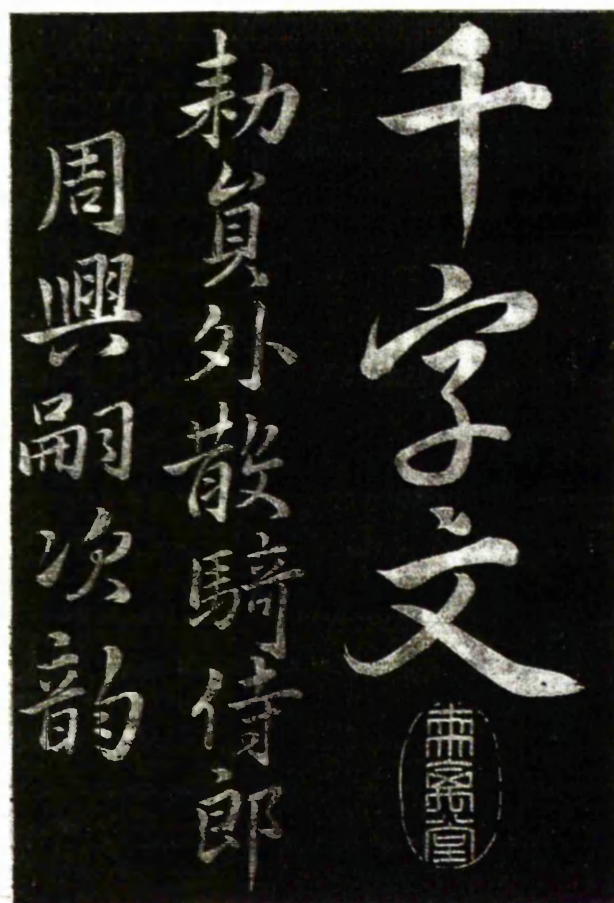 千字文
勑員外散騎侍郎
周興嗣次韵